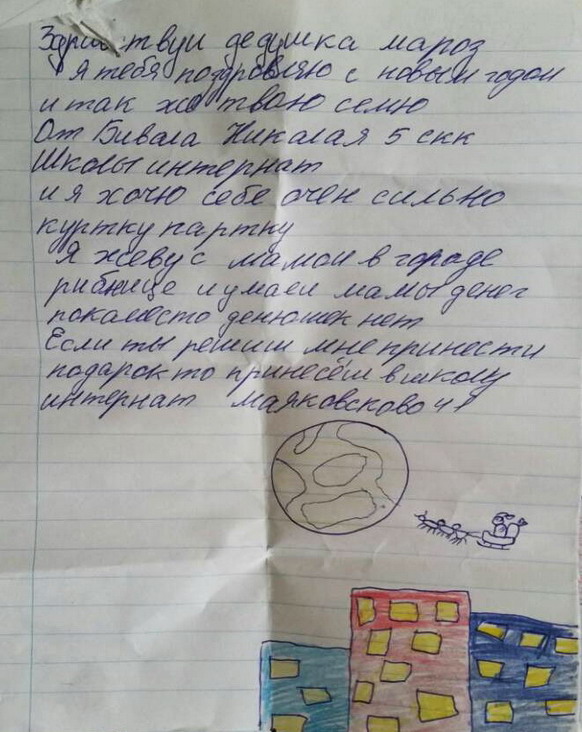 Здравствуй дедушка мароз
я тебя поздровляю с новым годом
и так же тваю семю
От Бивала Николая 5 скк
Школы интернат
и я хочу себе очен сильно
куртку партку
Я жеву с мамой в городе
рибнице и у маей мамы денег
покаместо денюшек нет
Если ты решиш мне принести
подарок то принесёш в школу
интернат маяковсково